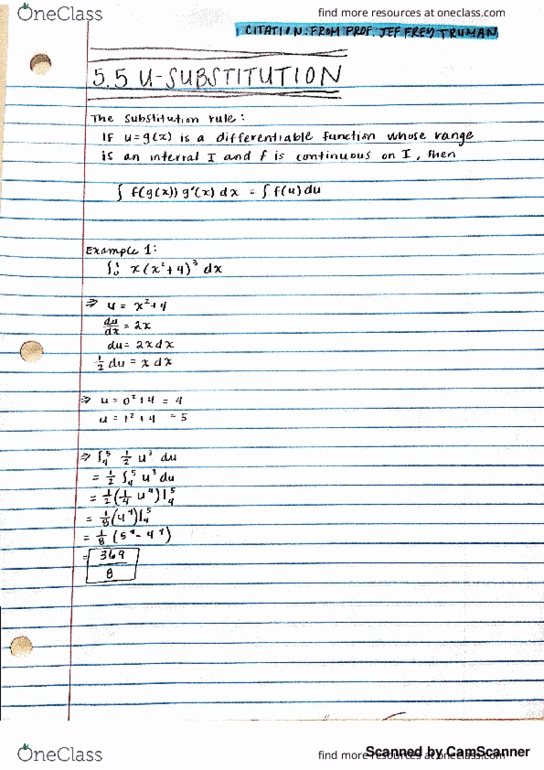 OneClass
find more resources at oneclass.com
CITATION: FROM PROF. JEFFREY TRUMAN
5.5 U-SUBSTITUTION
The substitution rule:
IF u=g(x) is a differentiable function whose range
is an interval I and f is continuous on I, then
∫ f(g(x)) g'(x) dx = ∫ f(u) du
Example 1:
∫₀¹ x(x²+4)³ dx
⇒ u = x²+4
du/dx = 2x
du = 2x dx
1/2 du = x dx
⇒ u = 0²+4 = 4
u = 1²+4 = 5
⇒ ∫₄⁵ 1/2 u³ du
= 1/2 ∫₄⁵ u³ du
= 1/2 (1/4 u⁴)|₄⁵
= 1/8 (u⁴)|₄⁵
= 1/8 (5⁴ - 4⁴)
= 369/8
OneClass
find more resources at oneclass.com
Scanned by CamScanner